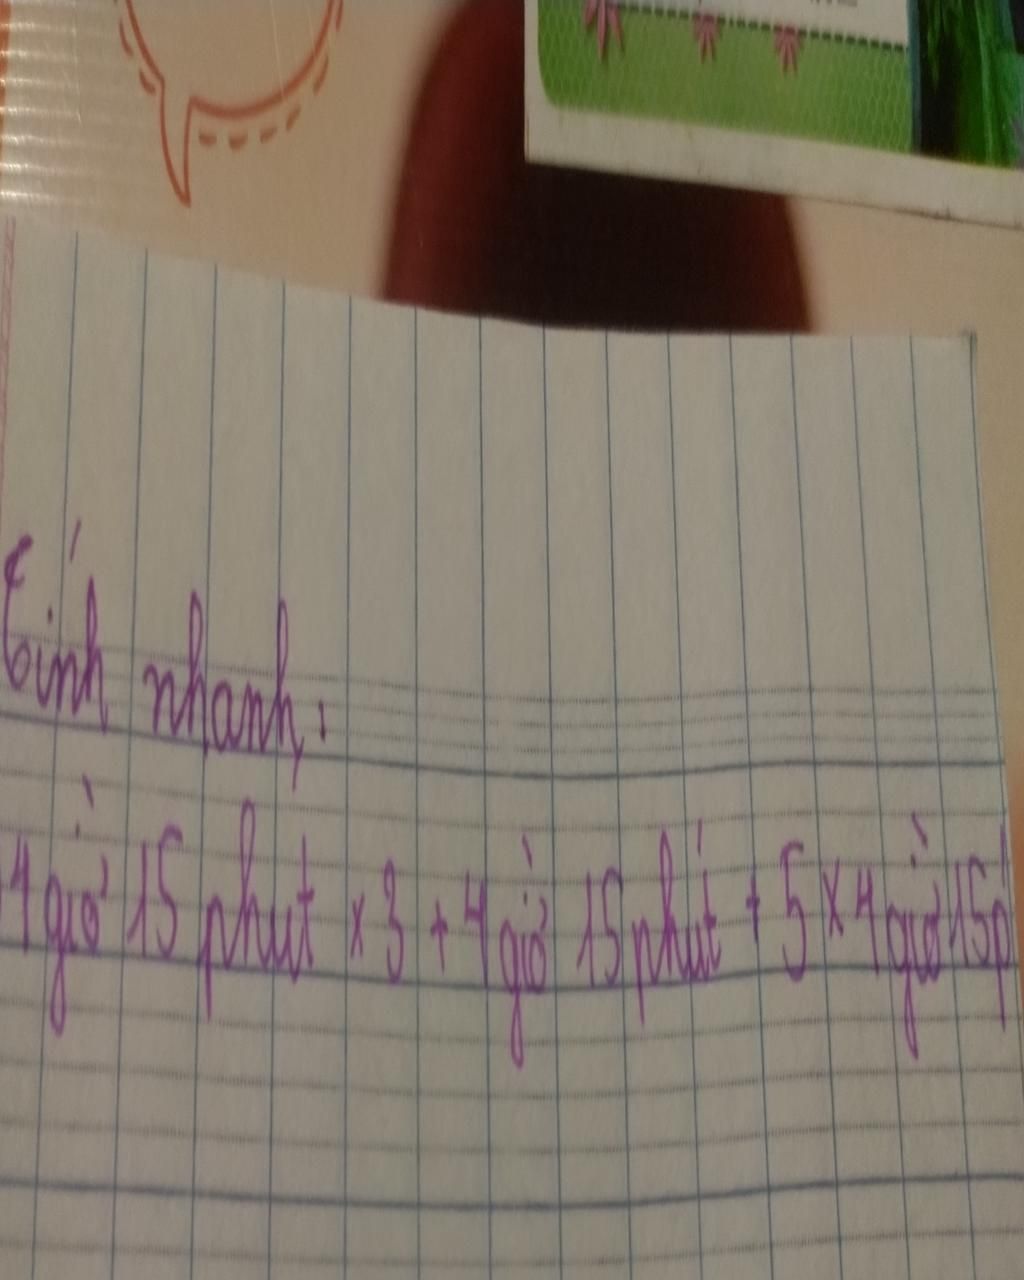 Tính nhanh:
4 giờ 15 phút x 3 + 4 giờ 15 phút + 5 x 4 giờ 15p